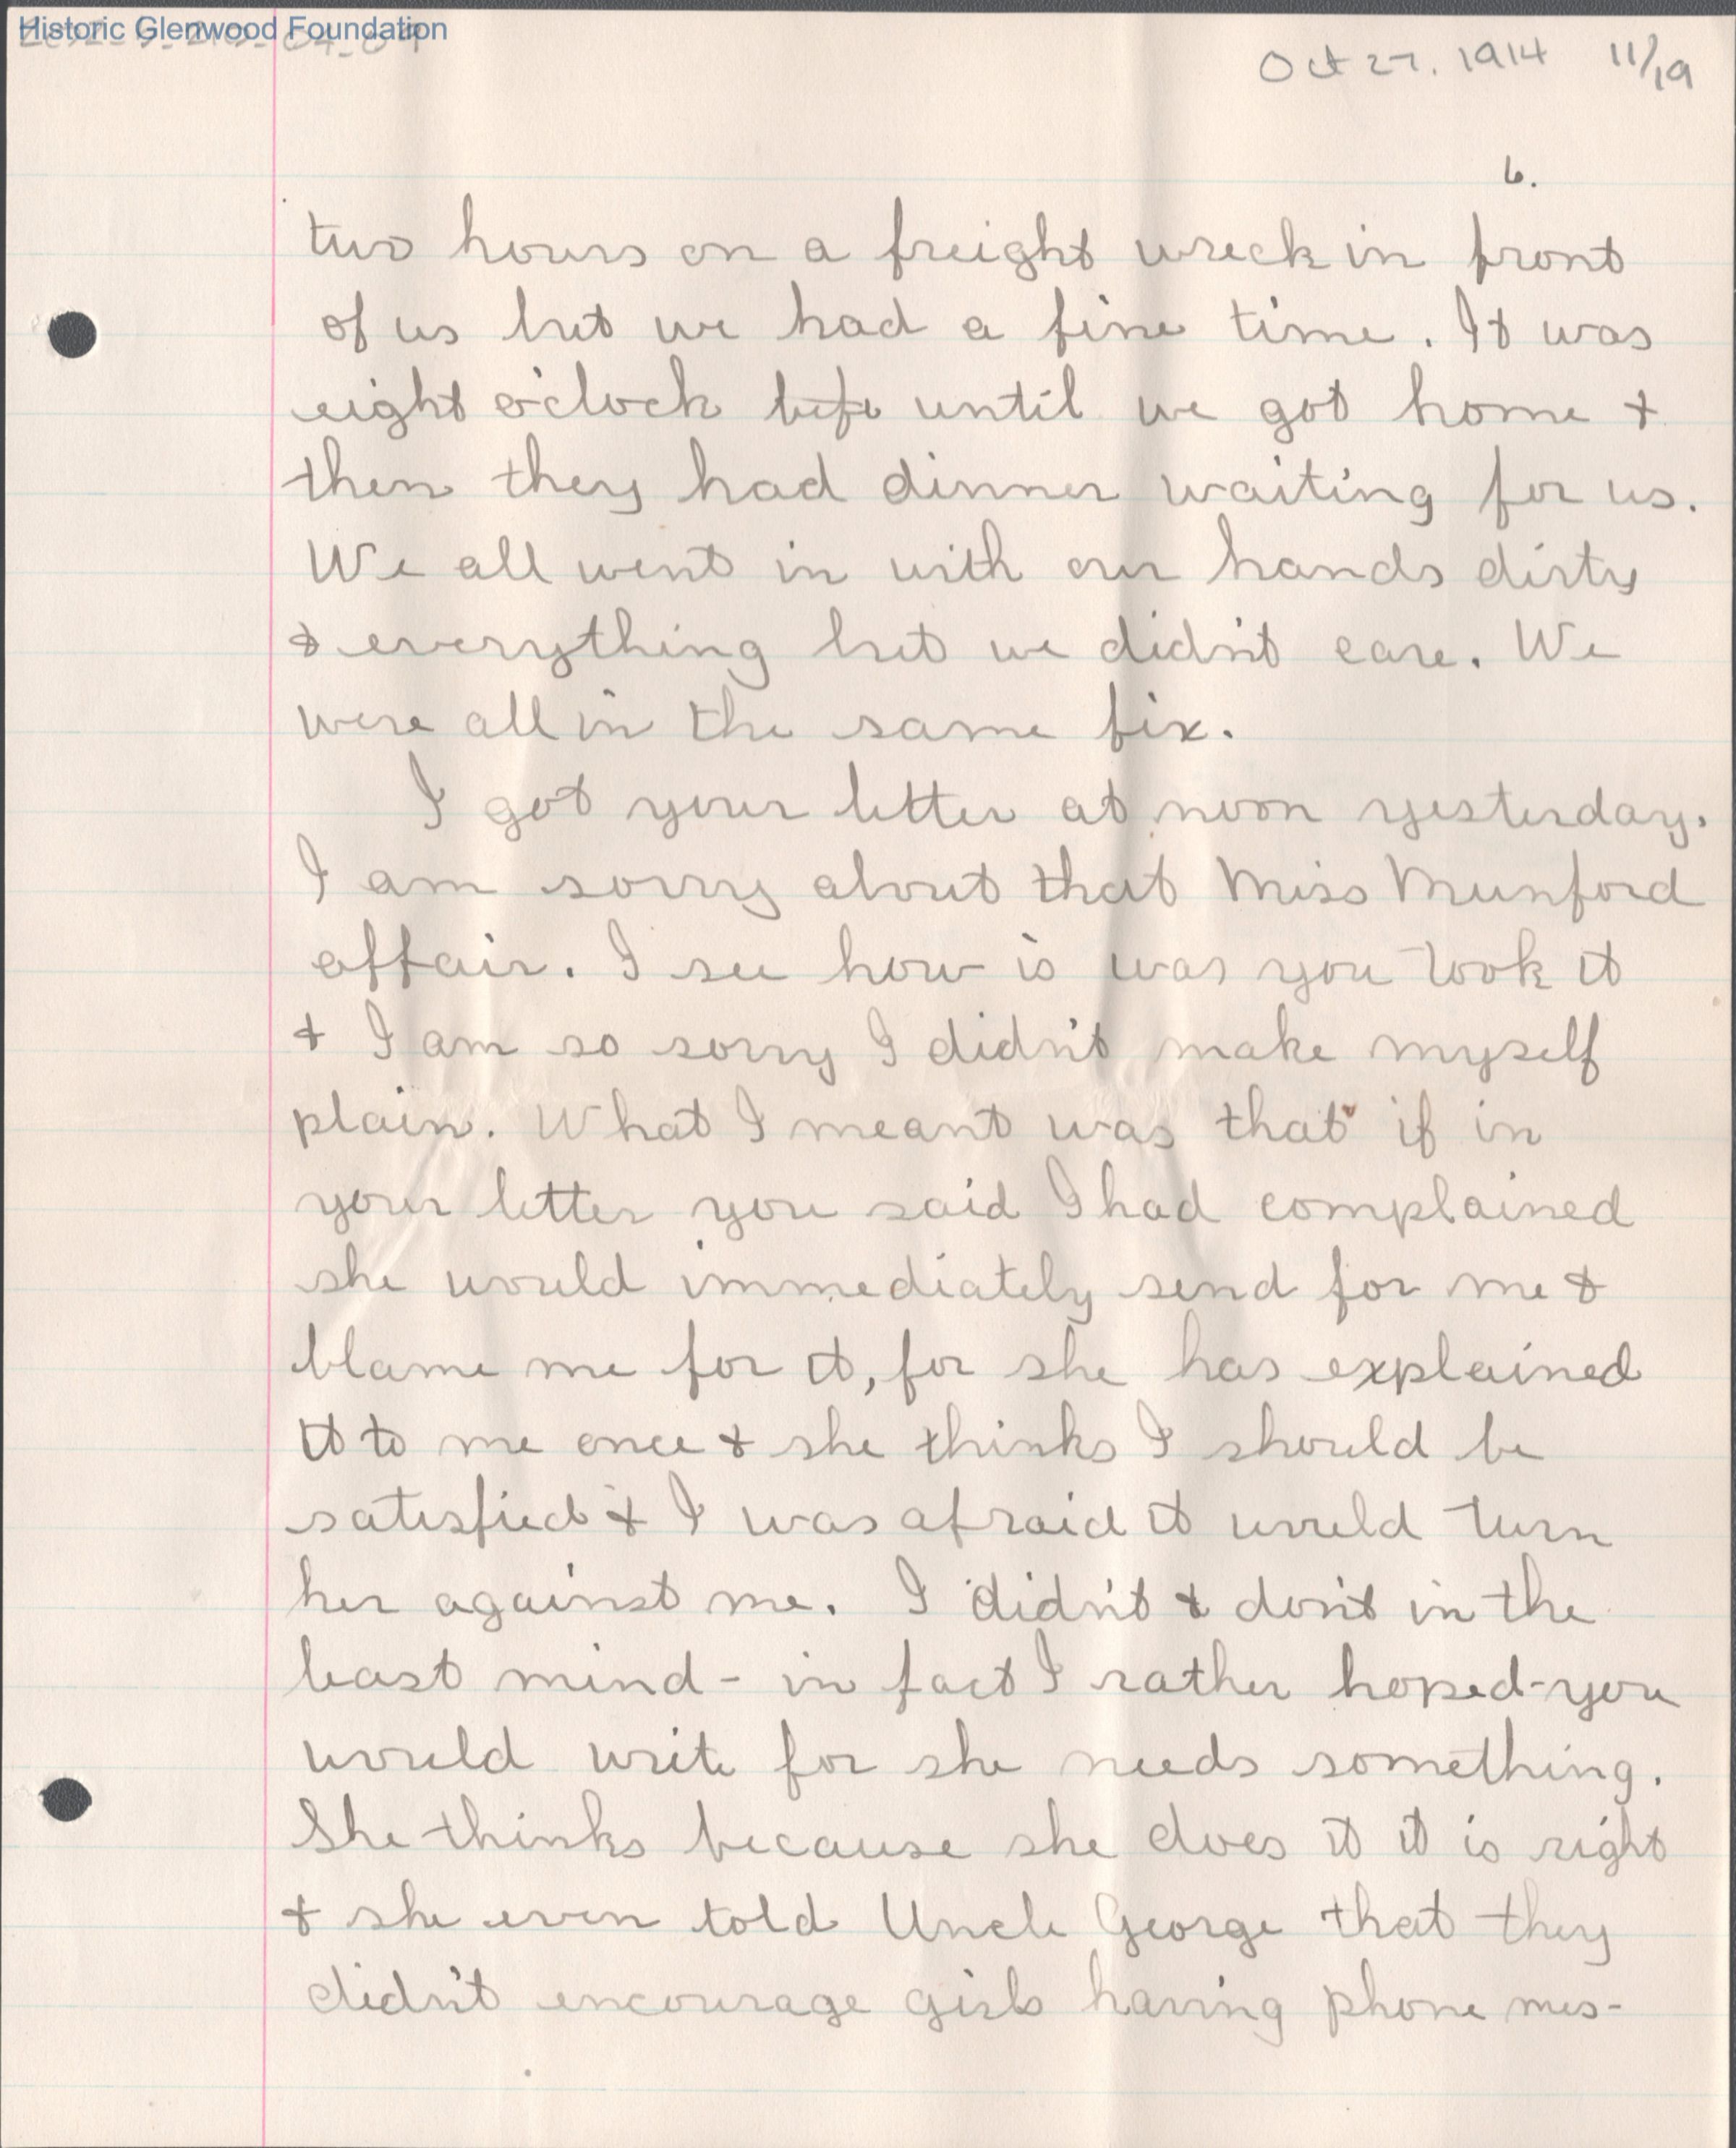 Historic Glenwood Foundation
Oct 27. 1914 11/19
6.
two hours on a freight wreck in front
of us but we had a fine time. It was
eight o'clock befo until we got home +
then they had dinner waiting for us.
We all went in with our hands dirty
& everything but we didn't care. We
were all in the same fix.
I got your letter at noon yesterday.
I am sorry about that Miss Munford
affair. I see how is was you took it
+ I am so sorry I didn't make myself
plain. What I meant was that if in
your letter you said I had complained
she would immediately send for me &
blame me for it, for she has explained
it to me once + she thinks I should be
satisfied + I was afraid it would turn
her against me. I didn't & don't in the
least mind - in fact I rather hoped - you
would write for she needs something.
She thinks because she does it it is right
+ she even told Uncle George that they
didn't encourage girls having phone mes-